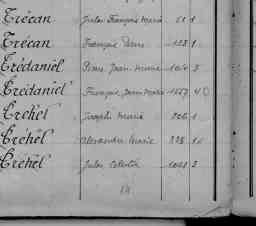 Trécan Jules François Marie 51 1
Trécan François Pierre 123 1
Trédaniel Pierre Jean Marie 3
Trédaniel François Jean Marie 1257
Tréhel Joseph Marie 206 1
Tréhel Alexandre Marie
Tréhel Jules Célestin 2
14